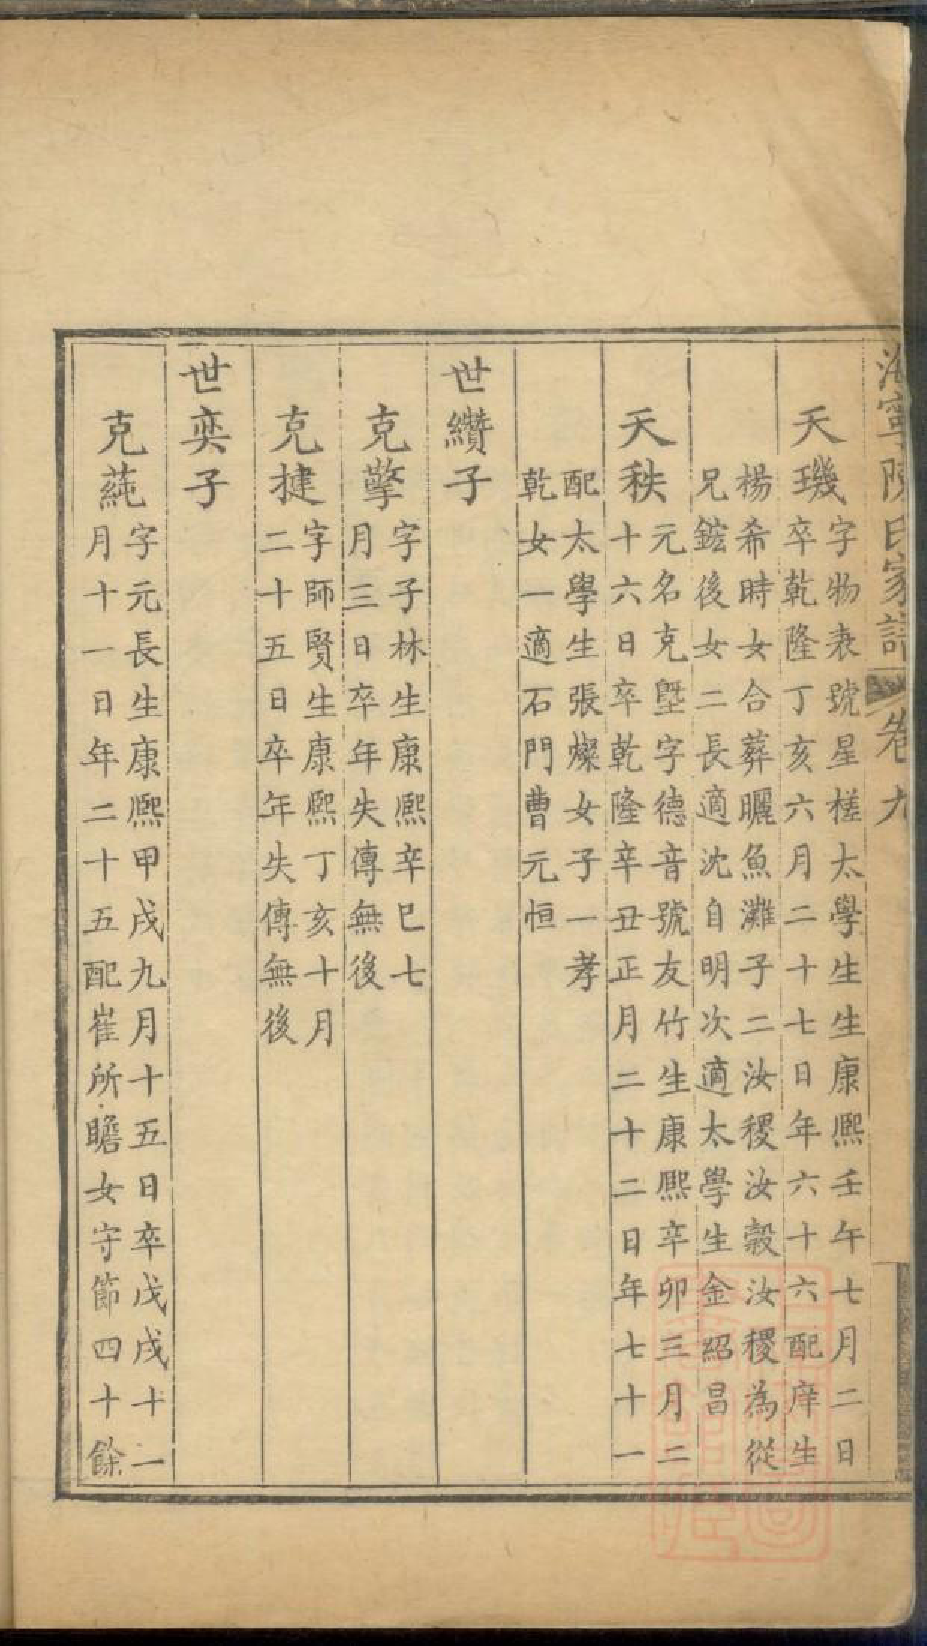 海寧陳氏家譜 卷九
天璣
字物表號星槎太學生生康熙壬午七月二日
卒乾隆丁亥六月二十七日年六十六配庠生
楊希時女合葬曬魚灘子二汝稷汝穀汝稷為從
兄鋐後女二長適沈自明次適太學生金紹昌
天秩
元名克塈字德音號友竹生康熙辛卯三月二
十六日卒乾隆辛丑正月二十二日年七十一
配太學生張燦女子一孝
乾女一適石門曹元恒
世纘子
克擎
字子林生康熙辛巳七
月三日卒年失傳無後
克捷
字師賢生康熙丁亥十月
二十五日卒年失傳無後
世奕子
克蒓
字元長生康熙甲戌九月十五日卒戊戌十一
月十一日年二十五配崔所瞻女守節四十餘